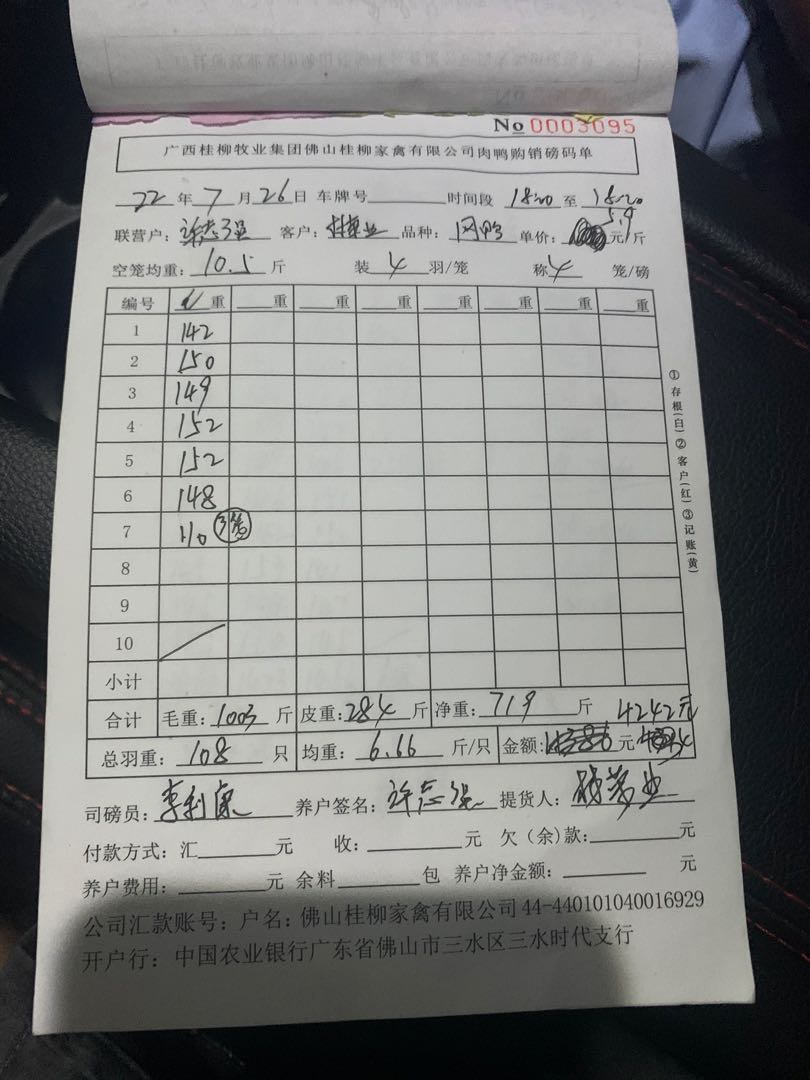 No 0003095
广西桂柳牧业集团佛山桂柳家禽有限公司肉鸭购销磅码单
22年7月26日 车牌号 时间段 18:00 至 18:20
联营户: 许志强 客户: 品种: 网鸭 单价: 5.9 元/斤
空笼均重: 10.5 斤 装 4 羽/笼 称 4 笼/磅
编号 毛重 重 重 重 重 重 重 重
1 142
2 150
3 149
4 152
5 152
6 148
7 110 3笼
8
9
10
小计
合计 毛重: 1003 斤 皮重: 284 斤 净重: 719 斤 4242元
总羽重: 108 只 均重: 6.66 斤/只 金额: 元
司磅员: 李利康 养户签名: 许志强 提货人:
付款方式: 汇 元 收: 元 欠(余)款: 元
养户费用: 元 余料 包 养户净金额: 元
公司汇款账号: 户名: 佛山桂柳家禽有限公司 44-440101040016929
开户行: 中国农业银行广东省佛山市三水区三水时代支行
①存根(白)②客户(红)③记账(黄)